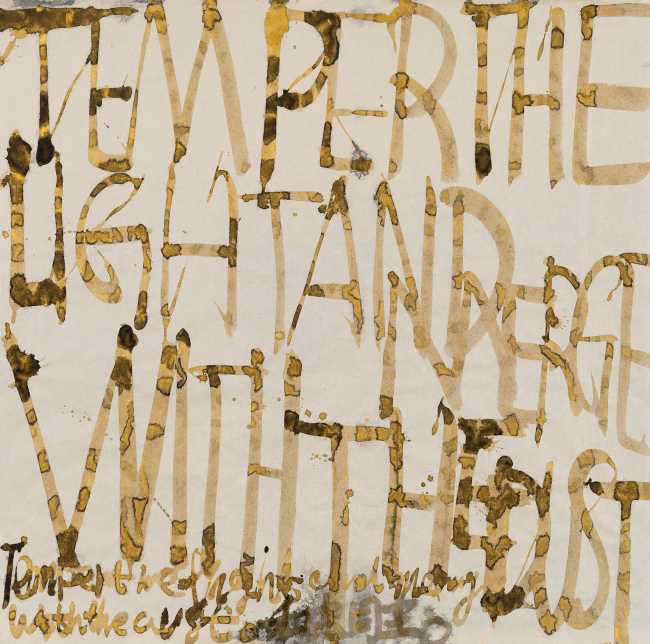 TEMPER THE
LIGHT AND MERGE
WITH THE DUST
Temper the light and
with the dust